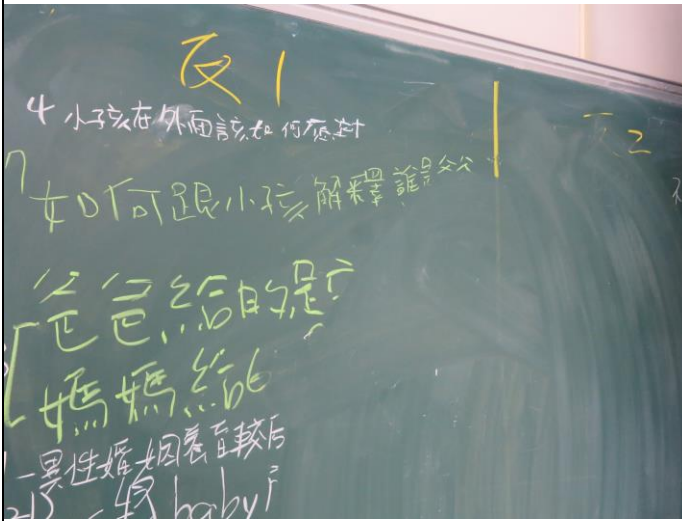 反1
反2
4 小孩在外面該如何應對
7 如何跟小孩解釋誰是父
爸爸給的是
媽媽給
一異性婚姻養育較
baby